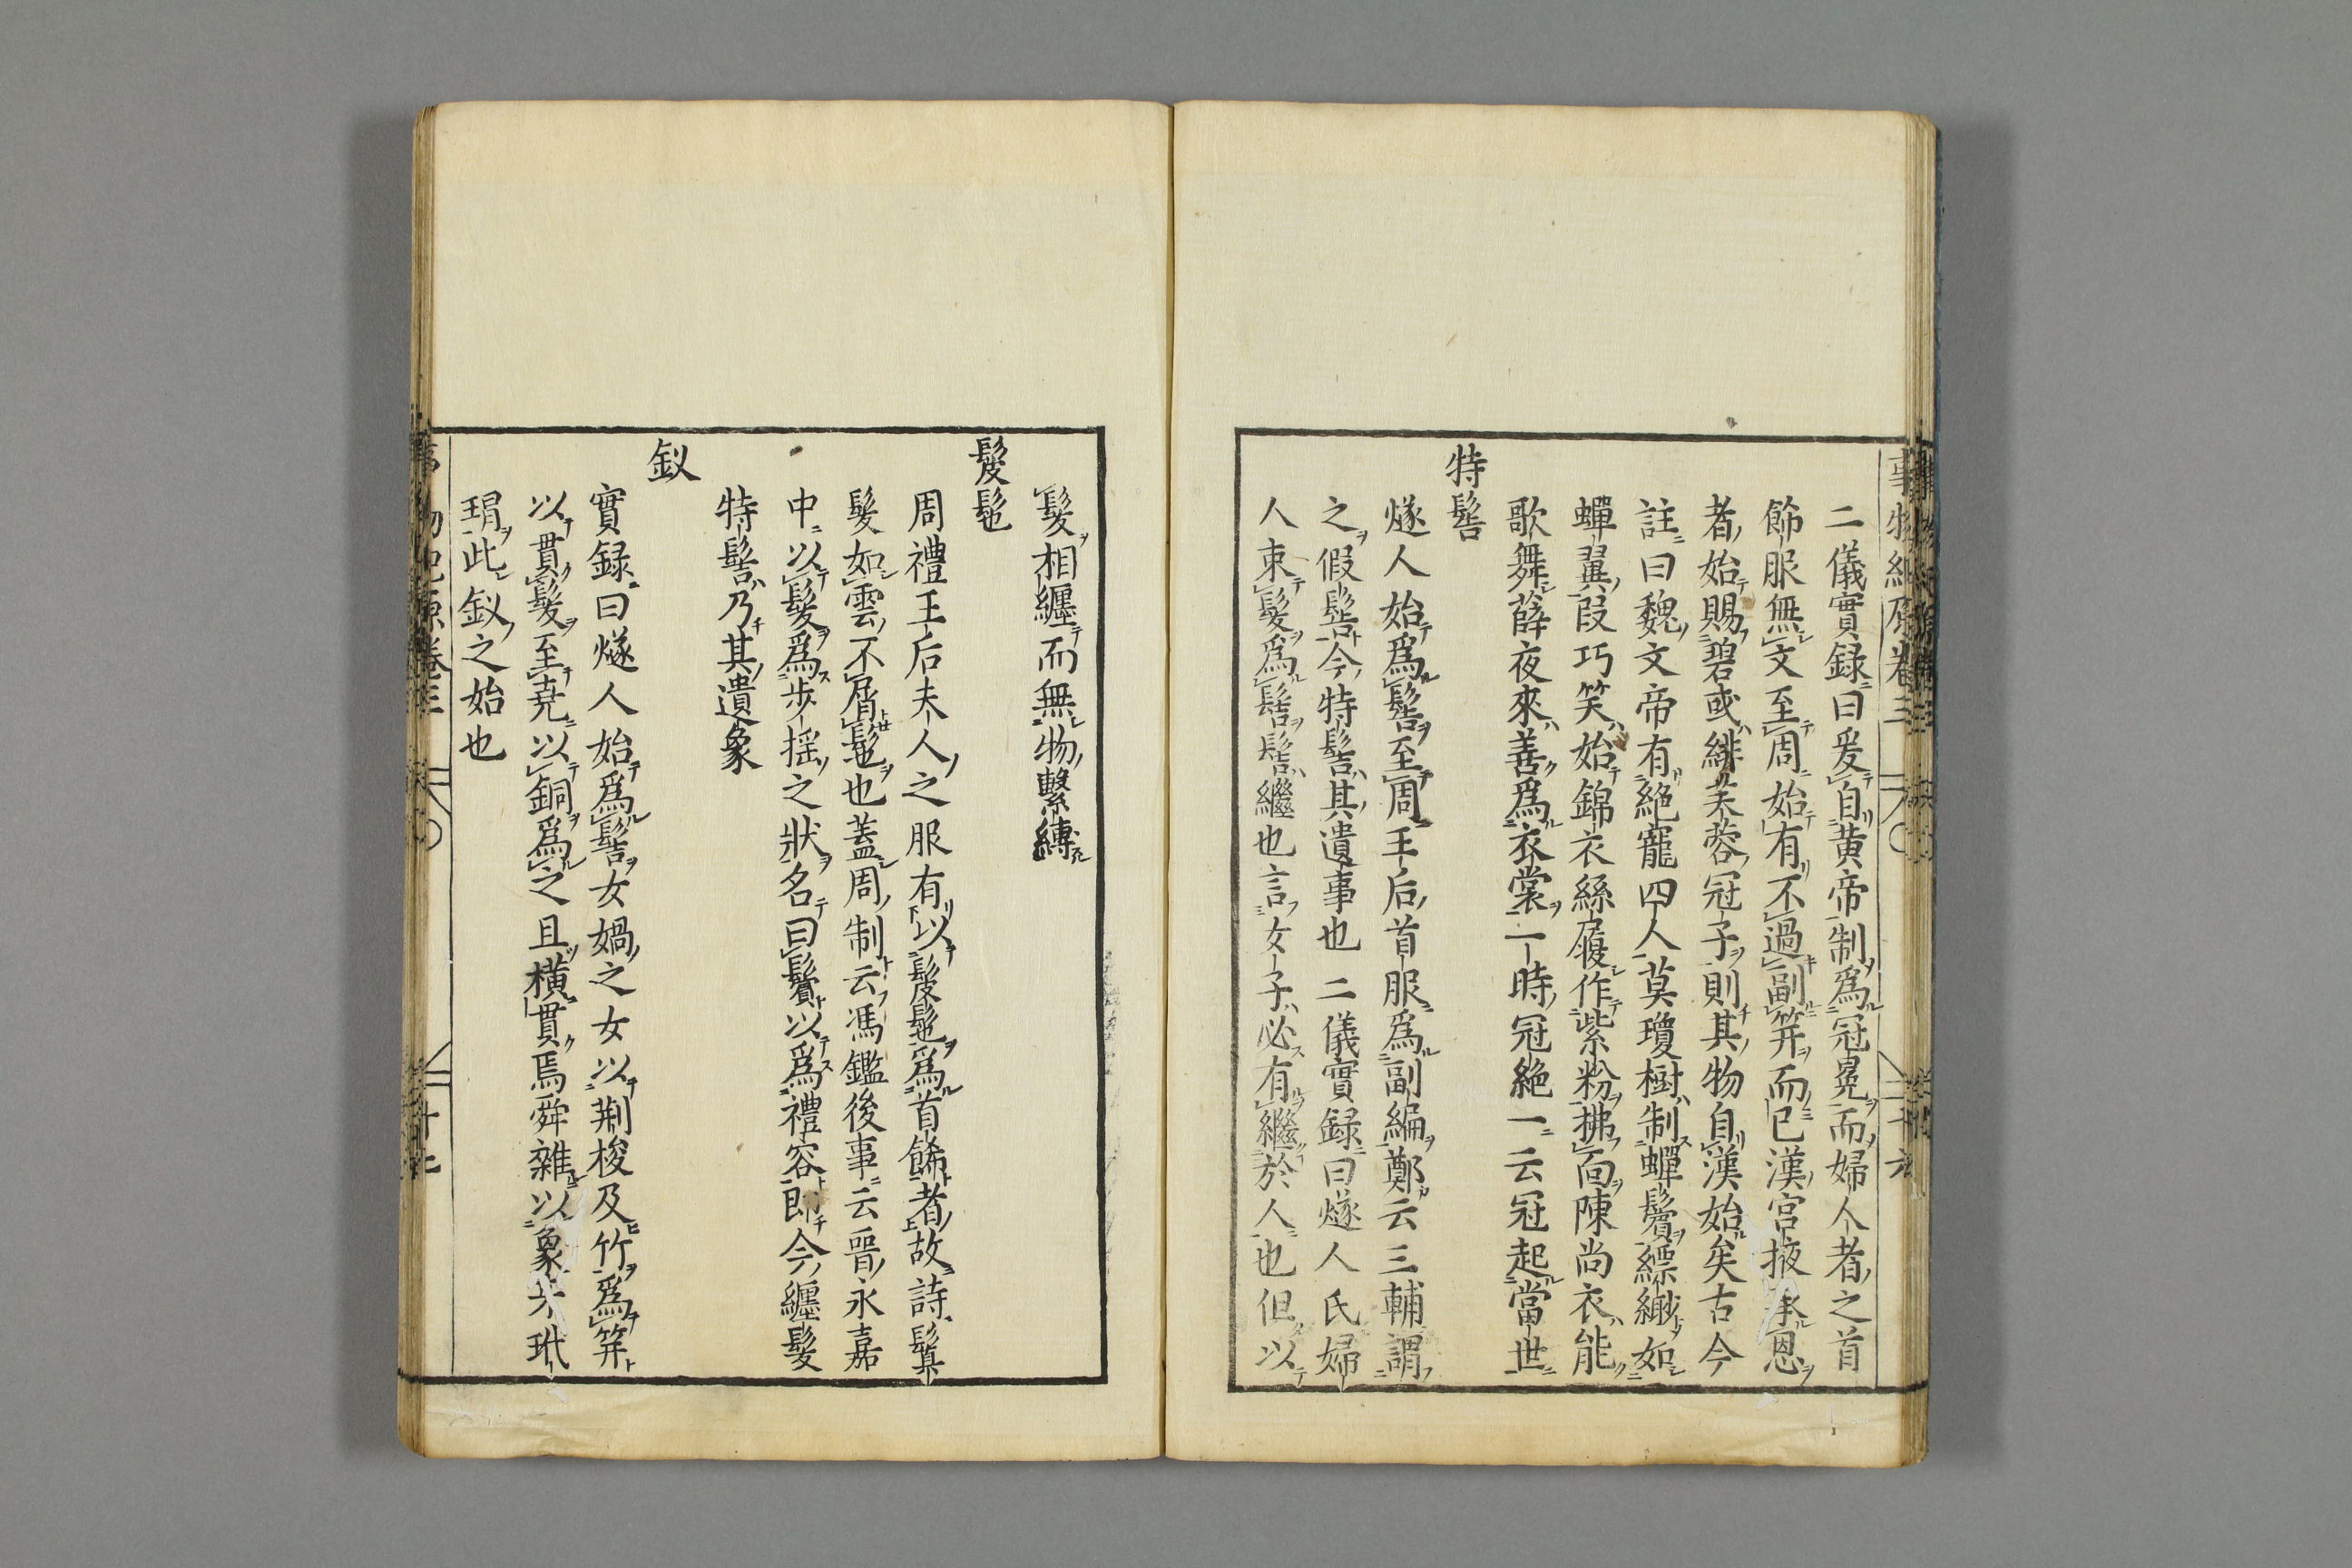 二儀實録曰爰自黄帝制爲冠冕而婦人者之首
飾服無文至周始有不過副笄而已漢宮掖承恩
者始賜碧或緋芙蓉冠子則其物自漢始矣古今
註曰魏文帝有絶寵四人莫瓊樹制蟬鬢縹緲如
蟬翼段巧笑始錦衣絲履作紫粉拂面陳尚衣能
歌舞薛夜來善爲衣裳一時冠絶一云冠起當世
特髻
燧人始爲髻至周王后首服爲副編鄭云三輔謂
之假髻今特髻其遺事也二儀實録曰燧人氏婦
人束髮爲髻髻繼也言女子必有繼於人也但以
髮相纏而無物繫縛
髲髢
周禮王后夫人之服有以髲髢爲首餙者故詩鬒
髮如雲不屑髢也蓋周制云馮鑑後事云晋永嘉
中以髮爲歩揺之狀名曰鬢以爲禮容即今纏髮
特髻乃其遺象
釵
實録曰燧人始爲髻女媧之女以荆梭及竹爲笄
以貫髮至尭以銅爲之且横貫焉舜雜以象牙玳
瑁此釵之始也